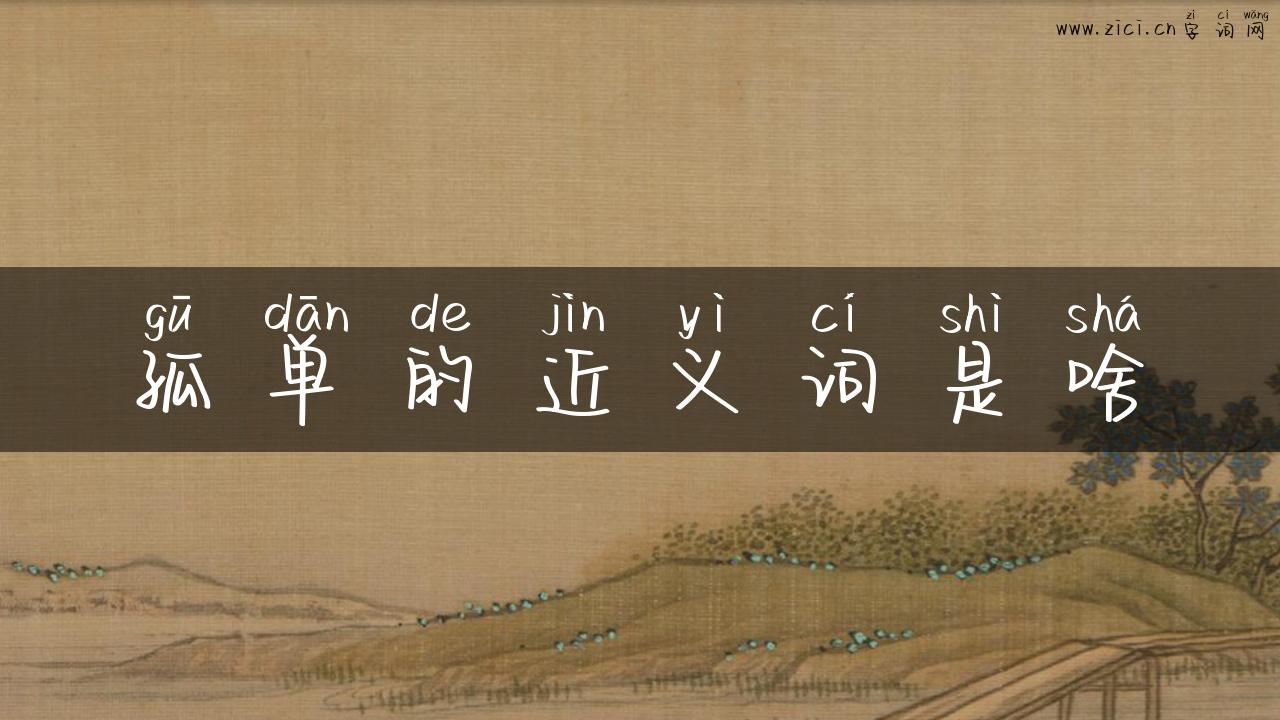 zì cí wǎng
www.zici.cn字词网
gū dān de jìn yì cí shì shá
孤单的近义词是啥